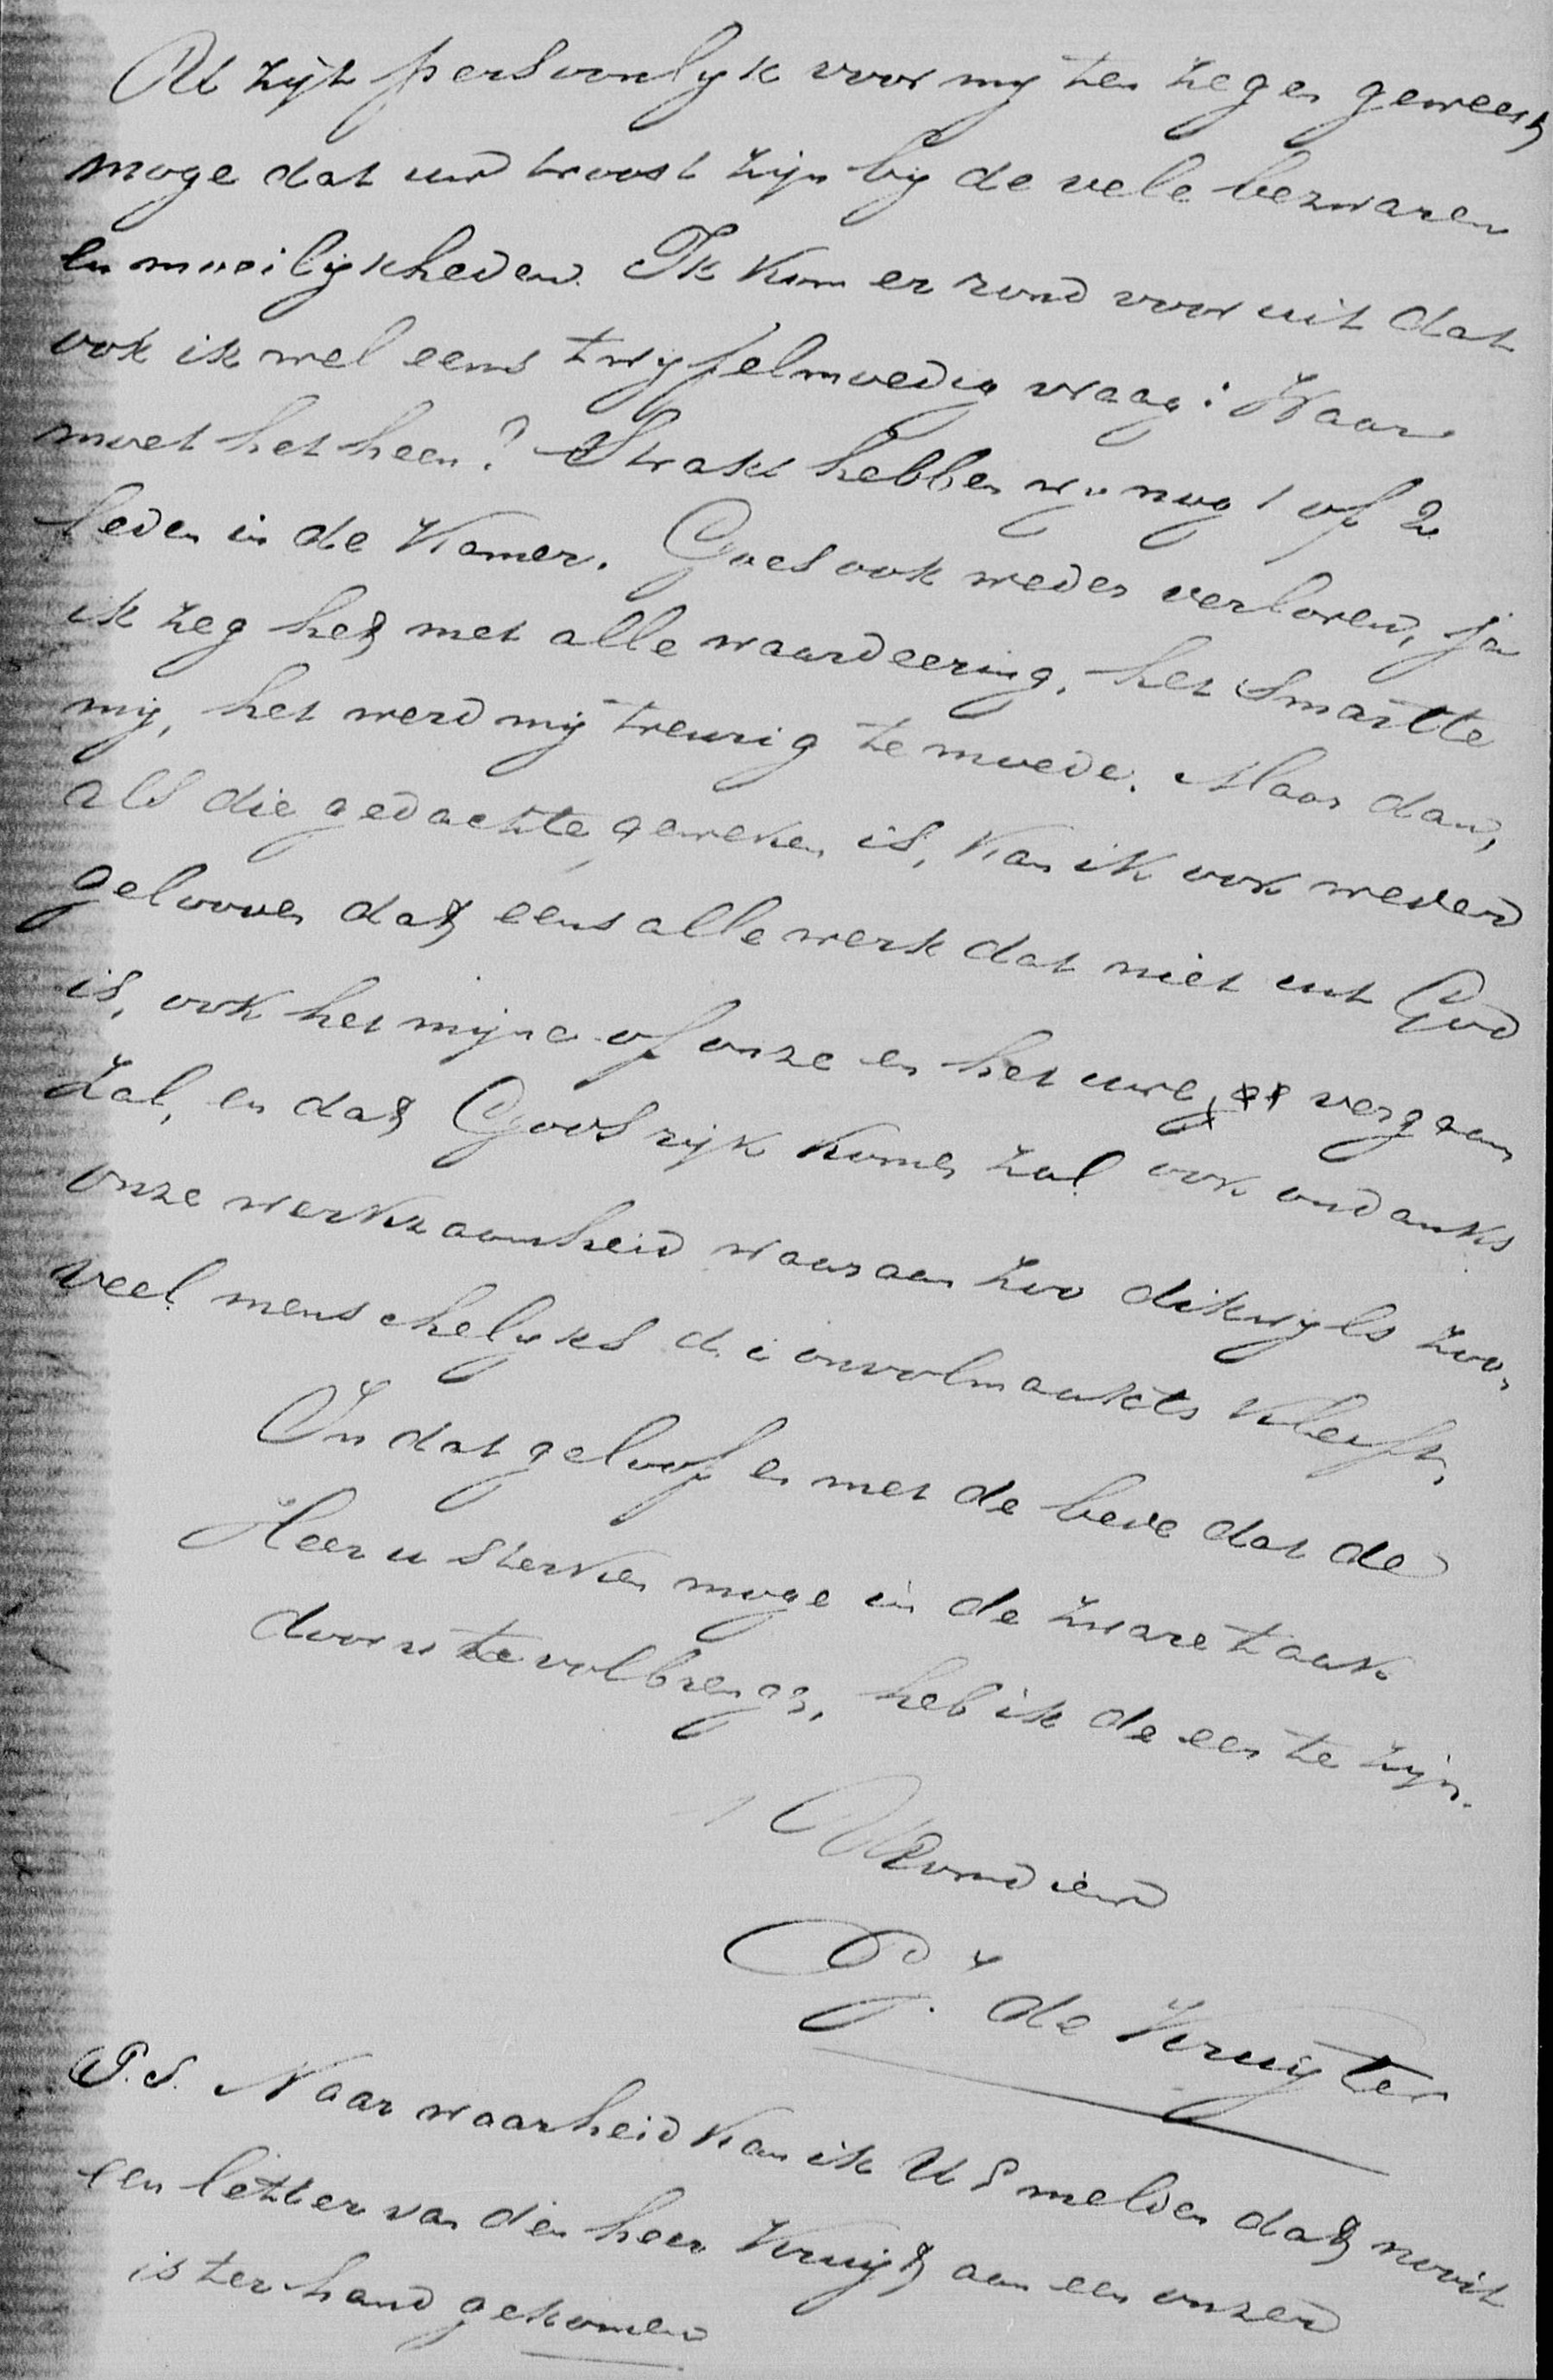 U zijt persoonlijk voor mij ten zegen geweest,
moge dat uw troost zijn bij de vele bezwaren
en moeilijkheden. Ik kom er rond voor uit dat
ook ik wel eens twijfelmoedig vraag: Waar
moet het heen? Straks hebben wij nog 1 of 2
leden in de Kamer. Goes ook weder verloren, ja
ik zeg het met alle waardeering, het smartte
mij, het werd mij treurig te moede. Maar dan,
als die gedachte geweken is, kan ik ook weder
gelooven dat eens alle werk dat niet uit God
is, ook het mijne of onze en het uwe, vergaan
zal, en dat Gods rijk komen zal ook ondanks
onze werkzaamheid waaraan zoo dikwijls zoo
veel menschelijks d. i. onvolmaakts kleeft,
In dat geloof en met de bede dat de
Heer u sterken moge in de zware taak
door u te volbrengen, heb ik de eer te zijn.
UEw dien
P. J. de Kruijter
P.S. Naar waarheid kan ik UE melden dat nooit
een letter van den heer Kruijt aan een onzer
is ter hand gekomen